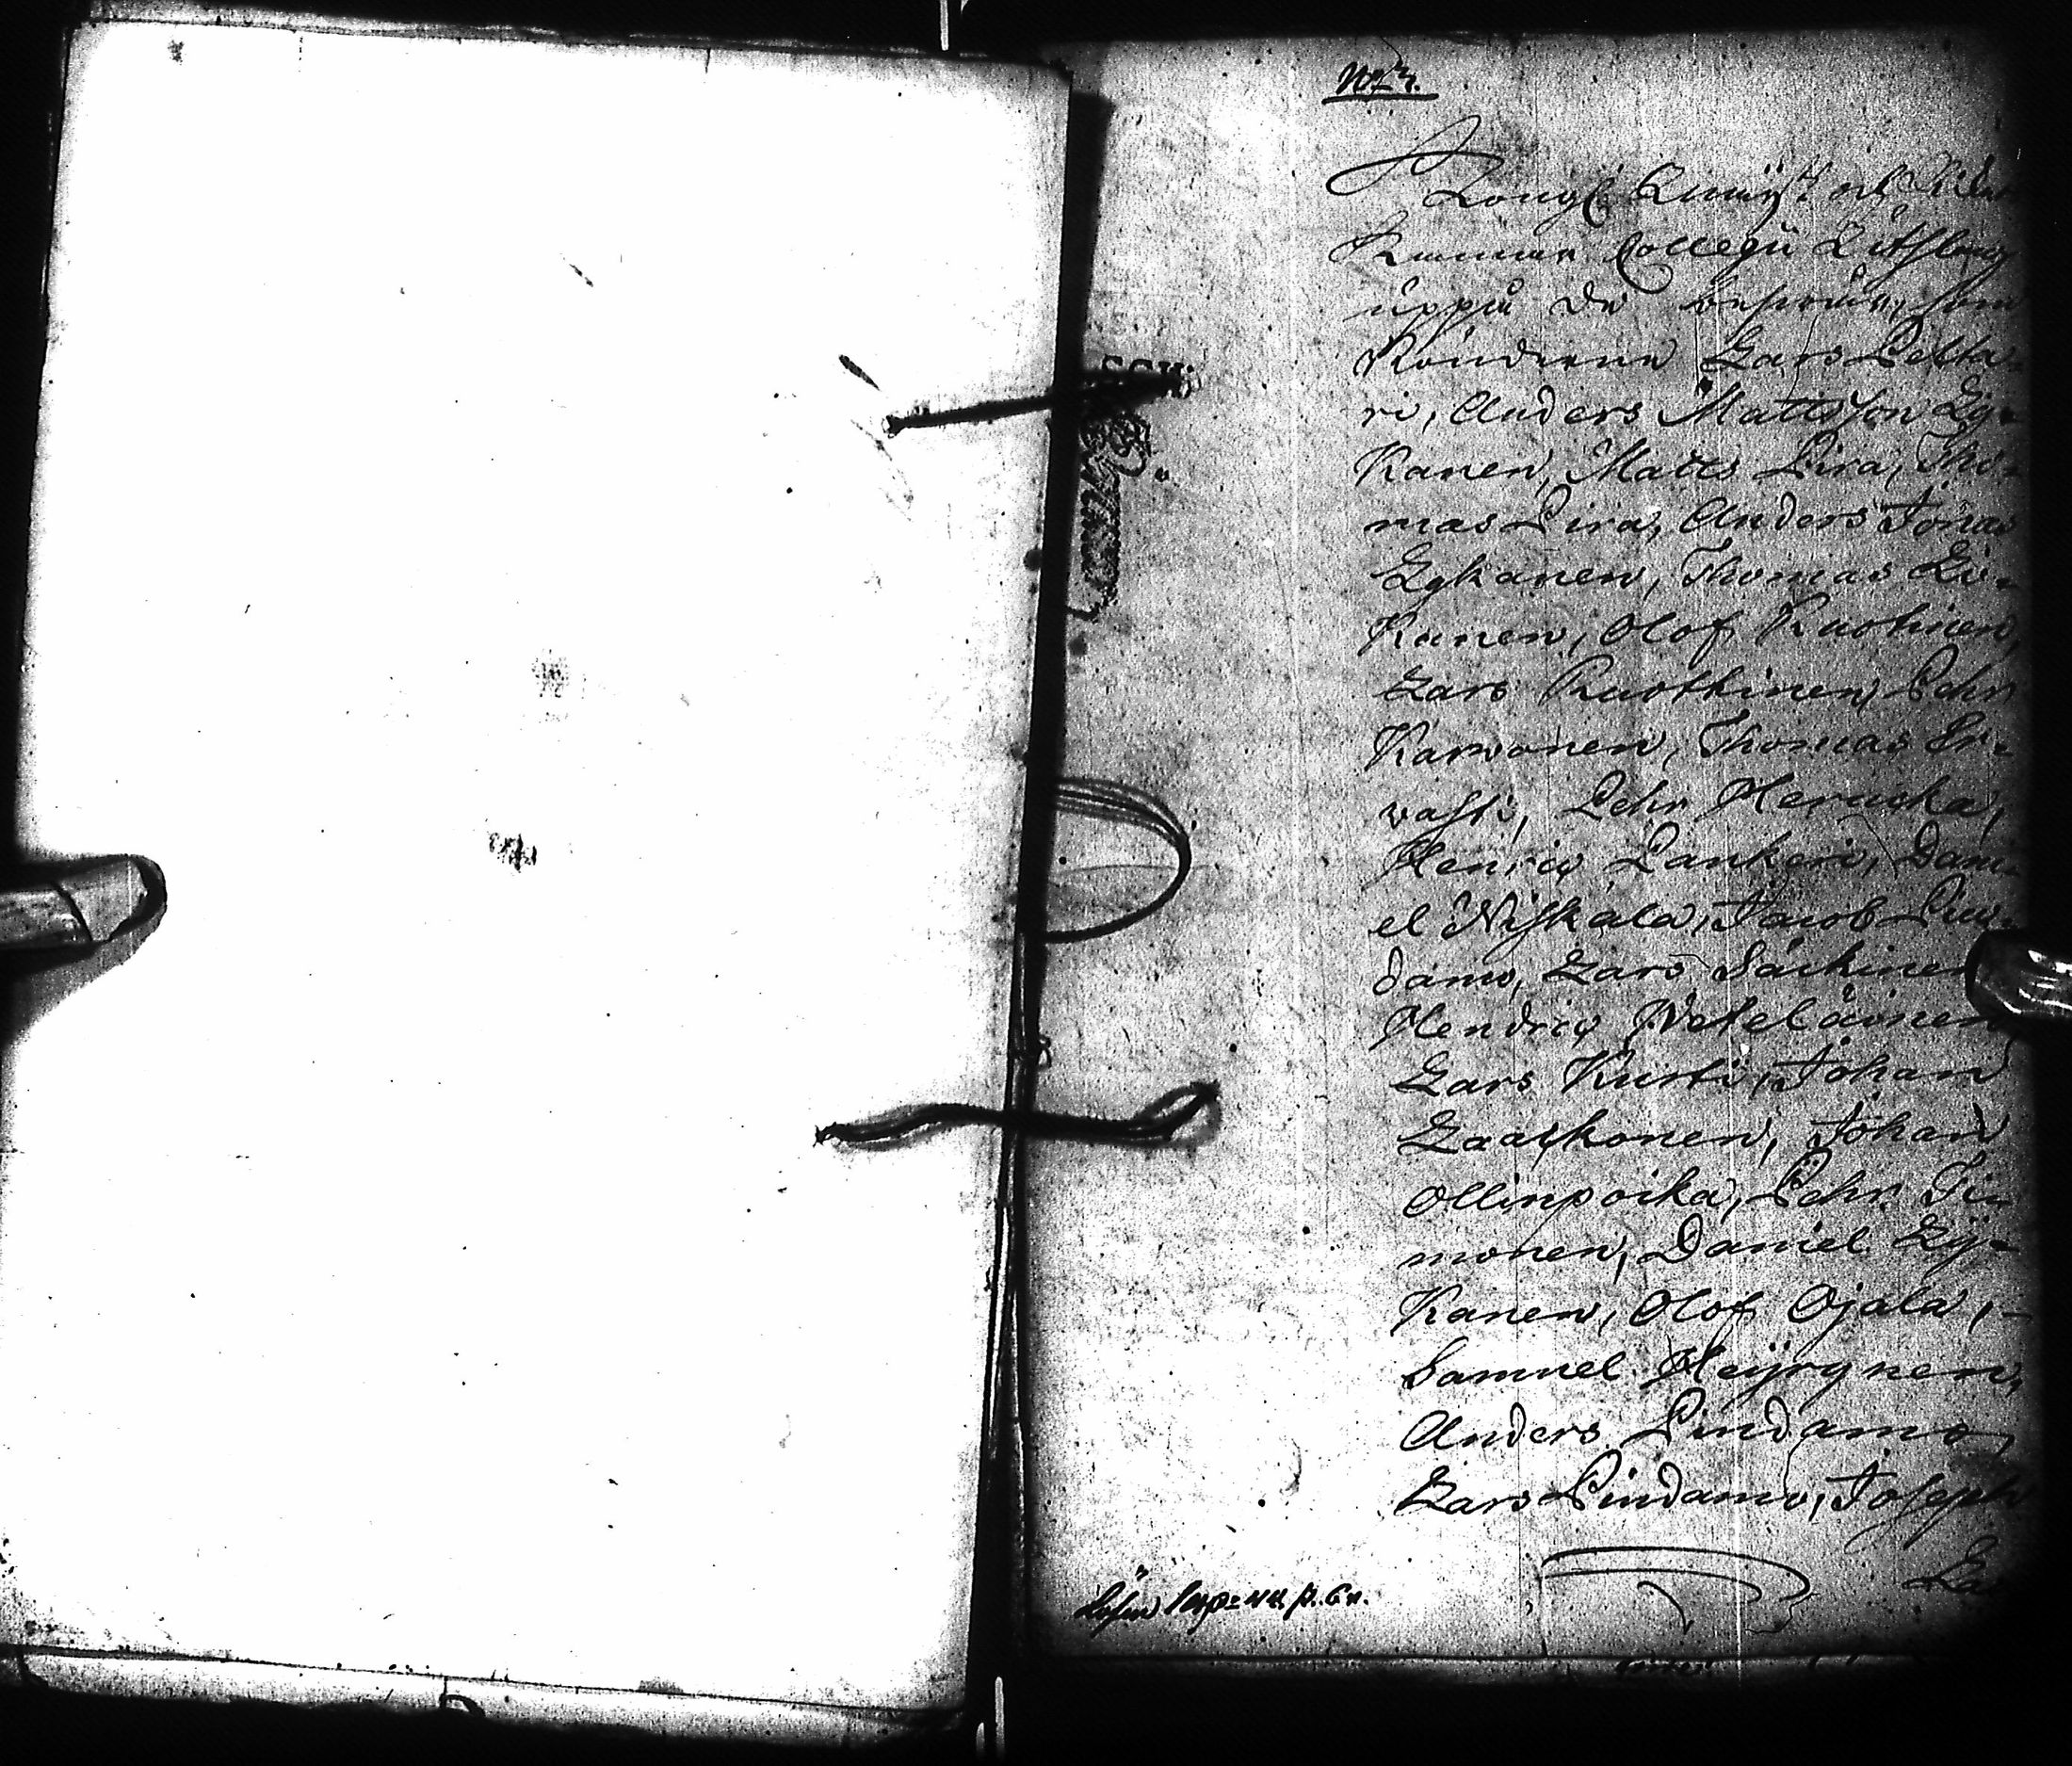 No 3.
Kongl. Krigs och
Kammar Collegii Utslag
uppå de besvär, som
Bönderne Lars Pelta-
ri, Anders Mattsson Ly-
Kanen, Matts Pira, Tho-
mas Pira, Anders Jonas
Lykanen, Thomas Ly-
Kanen, Olof Ruotinen,
Lars Ruothinen, Pehr
Karvonen, Thomas Er-
vasti, Pehr Heracka,
Henric Pankeri, Dani-
el Niskala, Jacob Pin-
damo, Lars Säckinen
Hendric Weteläinen
Lars Kurti, Johan
Laackonen, Johan
Ollinpoika, Pehr Ti-
monen, Daniel Ly-
Kanen, Olof Ojala,
Samuel Heyrynen,
Anders Pindamo,
Lars Pindamo, Joseph
La